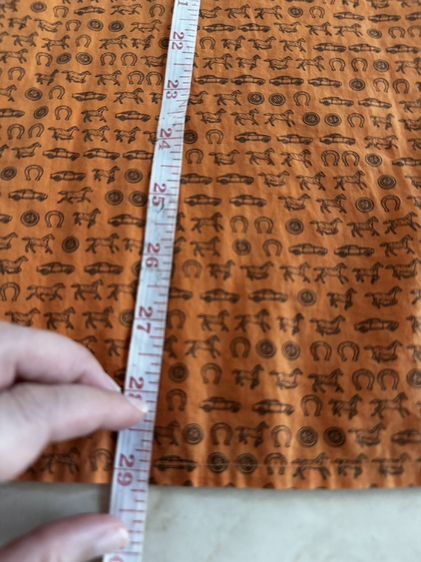 22
23
24
25
26
27
28
29